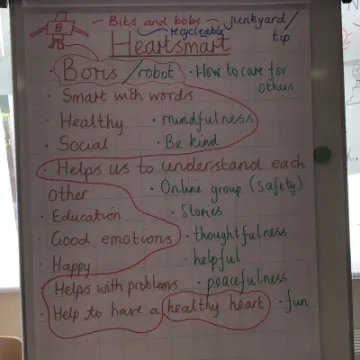 B
- Bits and bobs - junkyard/
recycleable tip
Heartsmart
· Boris / robot · How to care for
others
· Smart with words
· Healthy · mindfulness
· Social · Be kind
· Helps us to understand each
other · Online group (safety)
· Education · Stories
· Good emotions · thoughtfulness
· Happy · helpful
· Helps with problems · peacefulness
· Help to have a healthy heart · fun